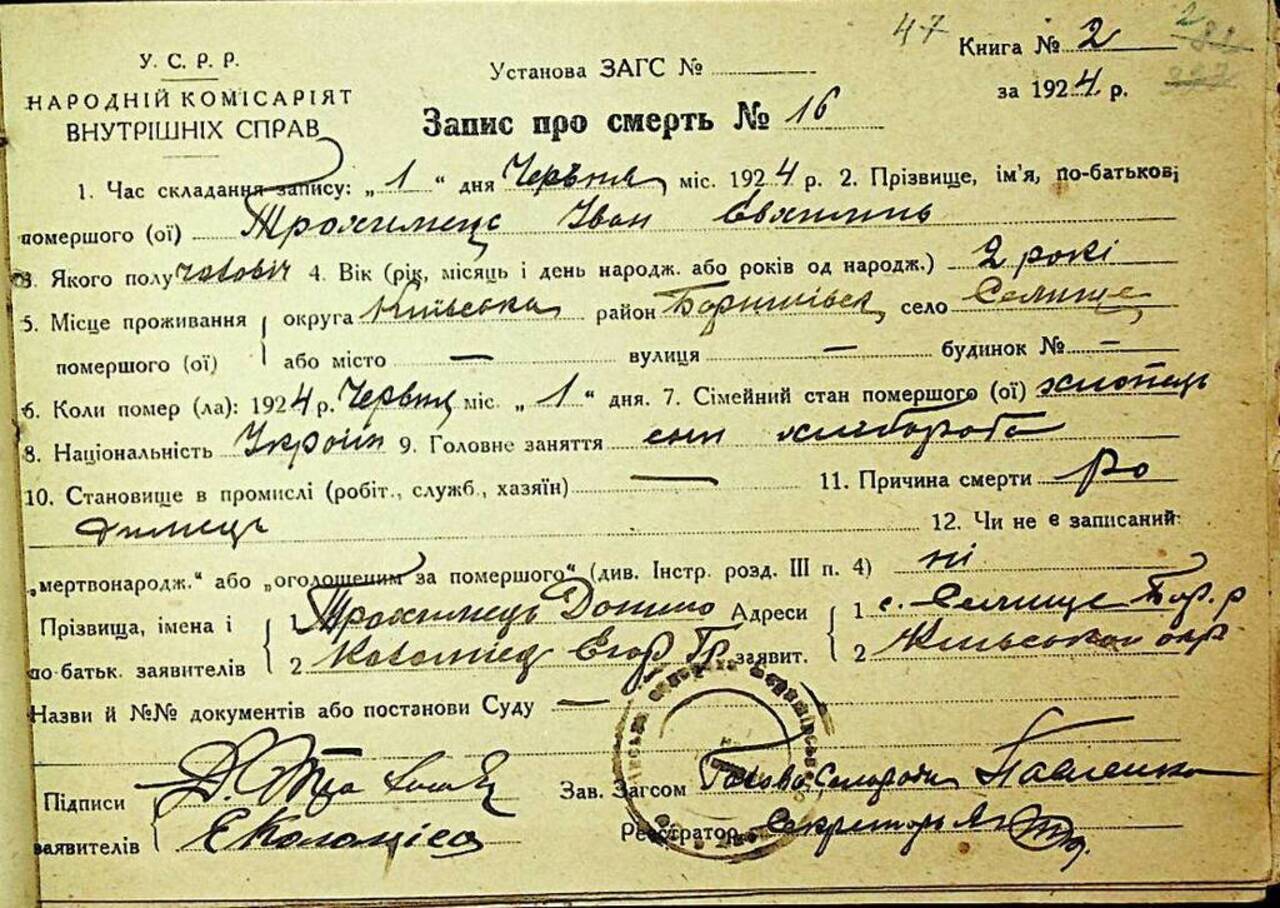 47
Книга № 2
У. С. Р. Р.
Установа ЗАГС №
НАРОДНІЙ КОМІСАРІЯТ
за 1924 р.
ВНУТРІШНІХ СПРАВ
Запис про смерть № 16
1. Час складання запису: „ 1 “ дня Червня міс. 1924 р. 2. Прізвище, ім'я, по-батькові
помершого (ої) Трохимець Іван
3. Якого полу чоловіч 4. Вік (рік, місяць і день народж. або років од народж.) 2 рокі
5. Місце проживання округа Київська район село Селище
помершого (ої) або місто — вулиця — будинок № —
6. Коли помер (ла): 1924 р. Червня міс. „ 1 “ дня. 7. Сімейний стан помершого (ої) хлопець
8. Національність Україн 9. Головне заняття син хлібороба
10. Становище в промислі (робіт., служб., хазяїн) — 11. Причина смерти ро
димець 12. Чи не є записаний
„мертвонародж.“ або „оголошеним за помершого“ (див. Інстр. розд. III п. 4) ні
Прізвища, імена і 1 Трохимець Адреси 1 с. Селище Бор. р
по-батьк. заявителів 2 Коломієц Егор Гр заявит. 2 Київської окр
Назви й №№ документів або постанови Суду —
Підписи Д. Зав. Загсом Голова Сельради Павленко
заявителів Е Коломієц Реєстратор Секретарь